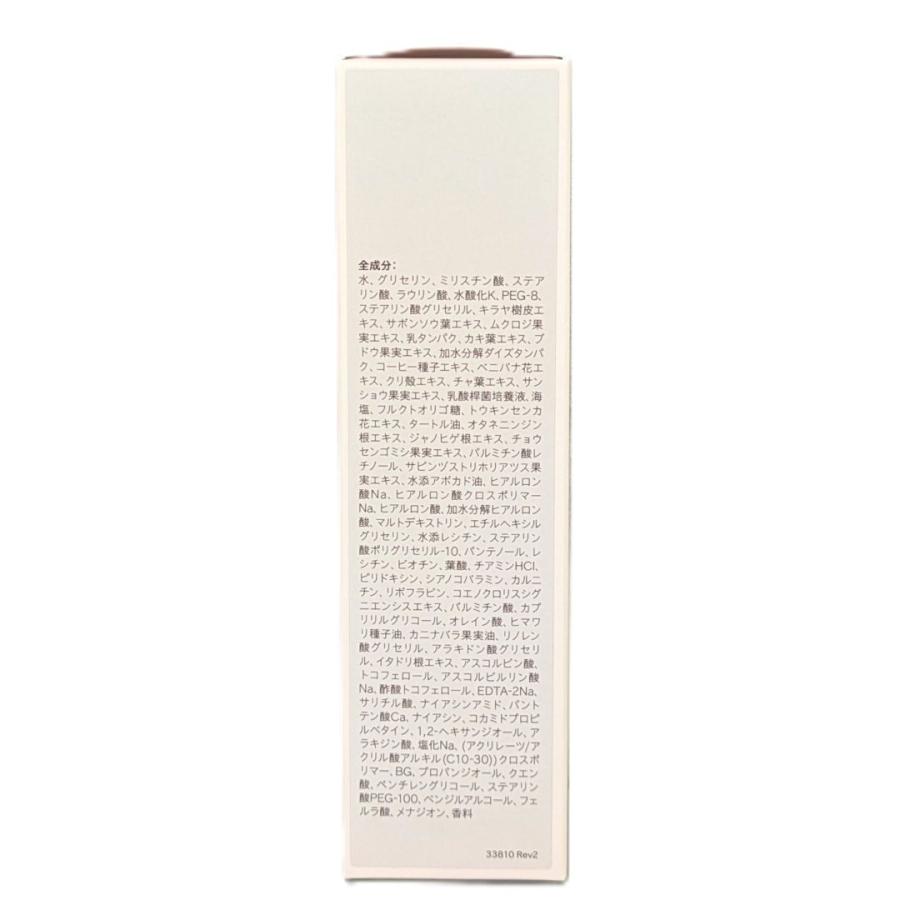 全成分：
水、グリセリン、ミリスチン酸、ステア
リン酸、ラウリン酸、水酸化K、PEG-8、
ステアリン酸グリセリル、キラヤ樹皮エ
キス、サボンソウ葉エキス、ムクロジ果
実エキス、乳タンパク、カキ葉エキス、ブ
ドウ果実エキス、加水分解ダイズタンパ
ク、コーヒー種子エキス、ベニバナ花エ
キス、クリ殻エキス、チャ葉エキス、サン
ショウ果実エキス、乳酸桿菌培養液、海
塩、フルクトオリゴ糖、トウキンセンカ
花エキス、タートル油、オタネニンジン
根エキス、ジャノヒゲ根エキス、チョウ
センゴミシ果実エキス、パルミチン酸レ
チノール、サピンヅストリホリアツス果
実エキス、水添アボカド油、ヒアルロン
酸Na、ヒアルロン酸クロスポリマー
Na、ヒアルロン酸、加水分解ヒアルロン
酸、マルトデキストリン、エチルヘキシル
グリセリン、水添レシチン、ステアリン
酸ポリグリセリル-10、パンテノール、レ
シチン、ビオチン、葉酸、チアミンHCl、
ピリドキシン、シアノコバラミン、カルニ
チン、リボフラビン、コエノクロリスシグ
ニエンシスエキス、パルミチン酸、カプ
リリルグリコール、オレイン酸、ヒマワ
リ種子油、カニナバラ果実油、リノレン
酸グリセリル、アラキドン酸グリセリ
ル、イタドリ根エキス、アスコルビン酸、
トコフェロール、アスコルビルリン酸
Na、酢酸トコフェロール、EDTA-2Na、
サリチル酸、ナイアシンアミド、パント
テン酸Ca、ナイアシン、コカミドプロピ
ルベタイン、1,2-ヘキサンジオール、ア
ラキジン酸、塩化Na、(アクリレーツ/ア
クリル酸アルキル(C10-30))クロスポ
リマー、BG、プロパンジオール、クエン
酸、ペンチレングリコール、ステアリン
酸PEG-100、ベンジルアルコール、フェ
ルラ酸、メナジオン、香料
33810 Rev2